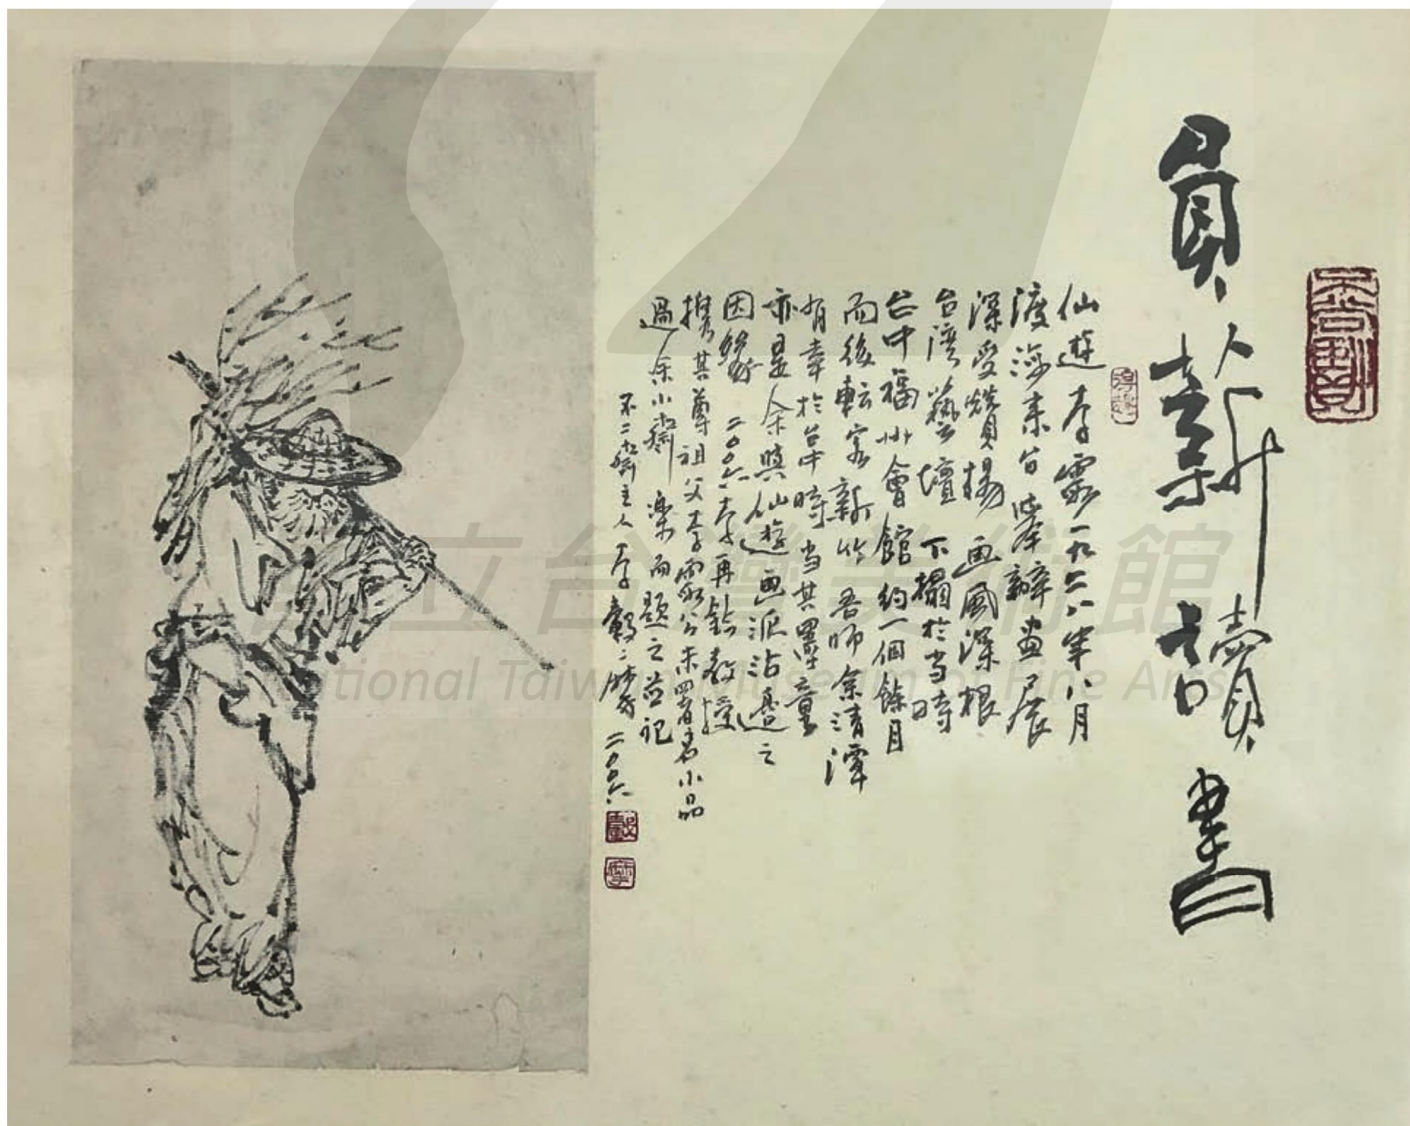 負薪讀書
仙遊李霞一九二八年八月
渡海来台肇辦畫展
深受贊揚画風深根
台湾藝壇下榻於当時
台中福州會館約一個餘月
而後転客新竹吾師余清潭
有幸於台中時当其墨童
亦是余與仙遊画派沾邊之
因緣 二00六李再鈐教授
携其尊祖父李霞公未署名小品
過余小齋樂而題之並記
不二齋主人李轂摩 二00六
立台灣美術館
National Taiwan Museum of Fine Arts